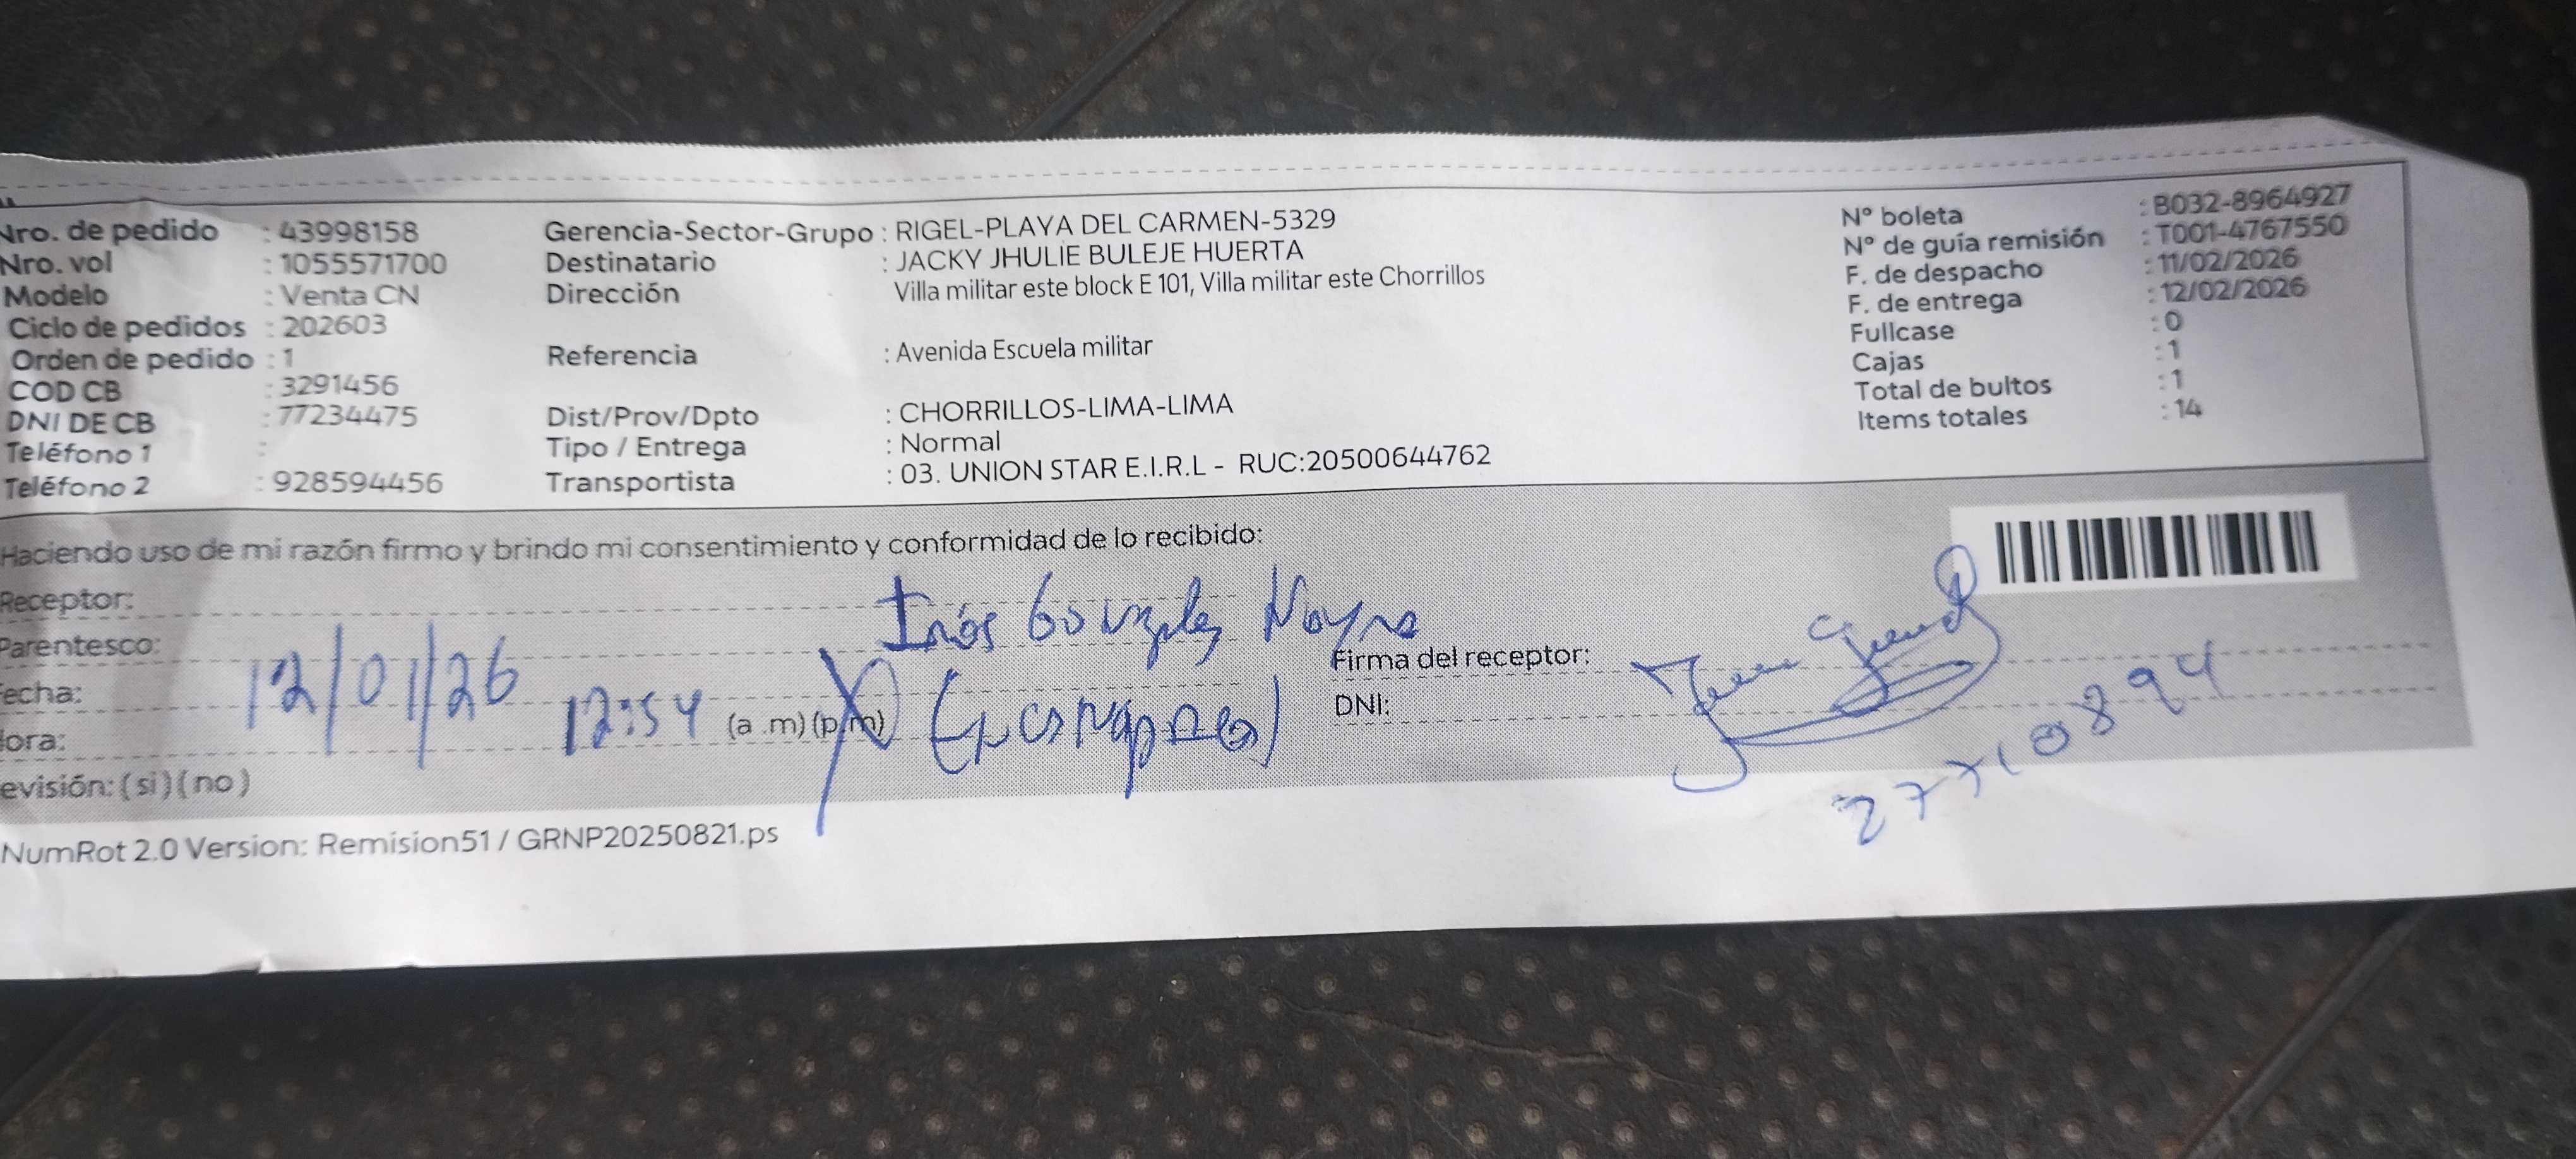 Nro. de pedido : 43998158
Nro. vol : 1055571700
Modelo : Venta CN
Ciclo de pedidos : 202603
Orden de pedido : 1
COD CB : 3291456
DNI DE CB : 77234475
Teléfono 1 :
Teléfono 2 : 928594456
Gerencia-Sector-Grupo : RIGEL-PLAYA DEL CARMEN-5329
Destinatario : JACKY JHULIE BULEJE HUERTA
Dirección Villa militar este block E 101, Villa militar este Chorrillos
Referencia : Avenida Escuela militar
Dist/Prov/Dpto : CHORRILLOS-LIMA-LIMA
Tipo / Entrega : Normal
Transportista : 03. UNION STAR E.I.R.L - RUC:20500644762
N° boleta : B032-8964927
N° de guía remisión : T001-4767550
F. de despacho : 11/02/2026
F. de entrega : 12/02/2026
Fullcase : 0
Cajas : 1
Total de bultos : 1
Items totales : 14
Haciendo uso de mi razón firmo y brindo mi consentimiento y conformidad de lo recibido:
Receptor: Inés Gonzales
Parentesco:
echa: 12/01/26
ora: 12:54 (a .m) (p.m)
evisión: ( si ) ( no )
Firma del receptor:
DNI:
NumRot 2.0 Version: Remision51 / GRNP20250821.ps